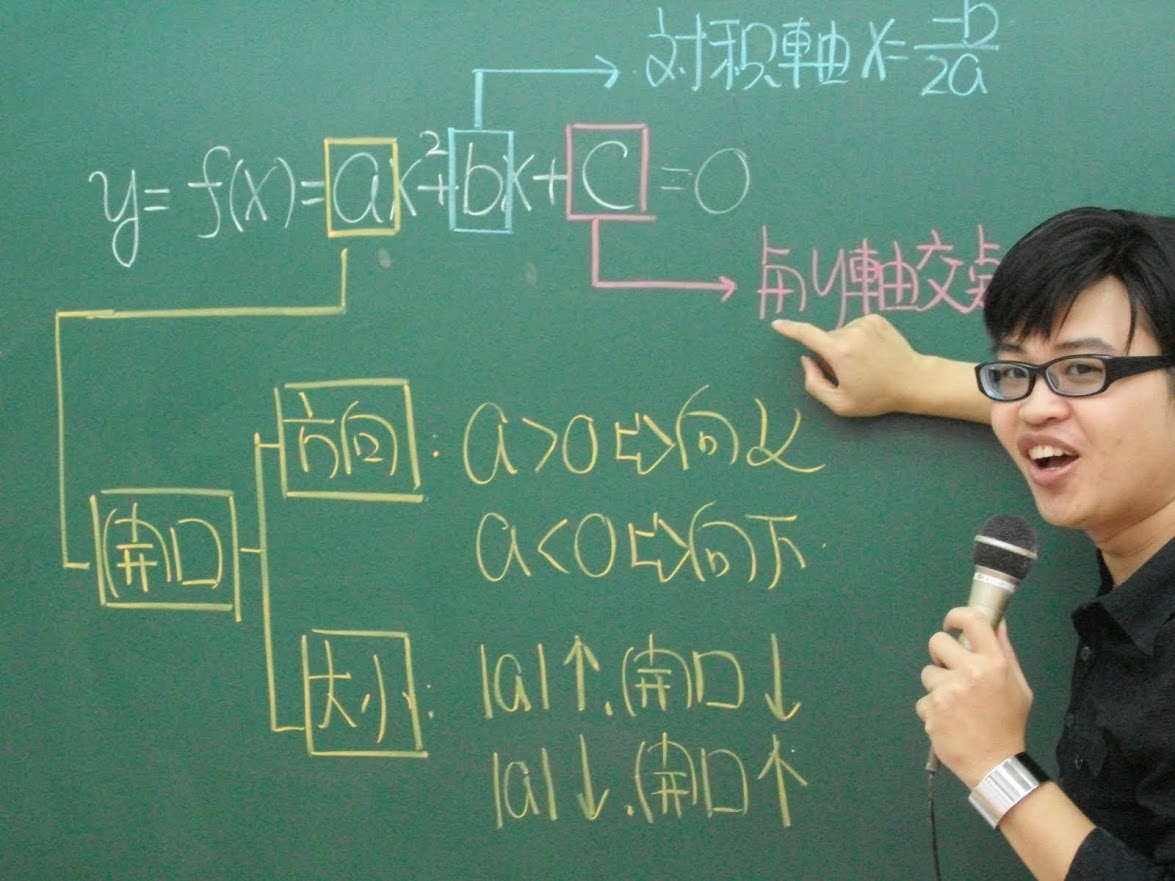 対积軸 x=-b/2a
y=f(x)=ax²+bx+c=0
与y軸交点
方向：a>0⇨向上
a<0⇨向下
開口
大小：|a|↑.開口↓
|a|↓.開口↑